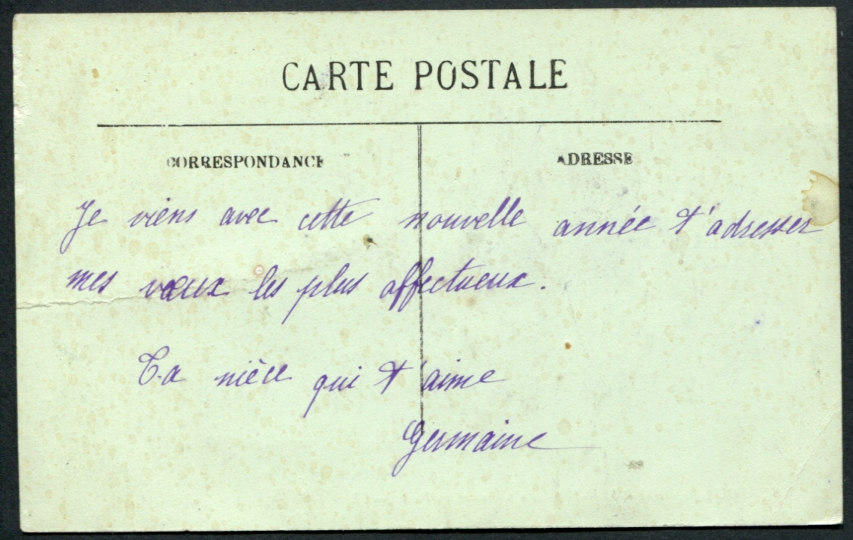 CARTE POSTALE
CORRESPONDANCE
ADRESSE
Je viens avec cette nouvelle année t'adresser
mes vœux les plus affectueux.
Ta nièce qui t'aime
Germaine